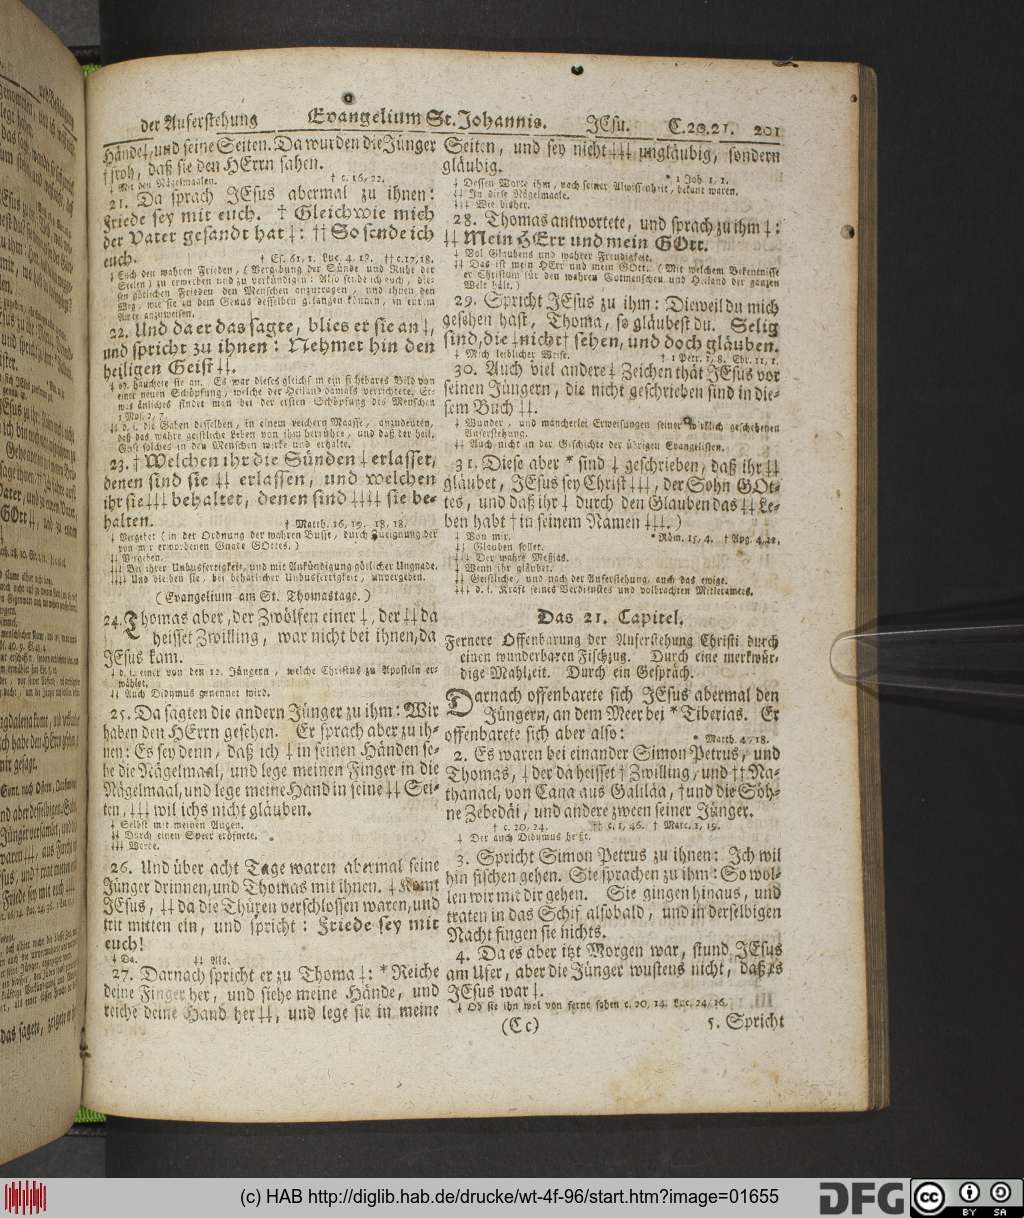 der Auferstehung Evangelium St. Johannis. JEsu. C. 20. 21. 201
Hände‡, und seine Seiten. Da wurden die Jünger
† froh, daß sie den HErrn sahen.
‡ Mit den Nägelmaalen. † c. 16, 22.
21. Da sprach JEsus abermal zu ihnen:
Friede sey mit euch. † Gleichwie mich
der Vater gesandt hat ‡: †† So sende ich
euch. † Es. 61, 1. Luc. 4. 18. †† c. 17, 18.
‡ Euch den wahren Frieden, (Vergebung der Sünde und Ruhe der
Seelen) zu erwerben und zu verkündigen: Also sende ich euch, die-
sen göttlichen Frieden den Menschen anzutragen, und ihnen den
Weg, wie sie zu dem Genus desselben gelangen können, in eurem
Amte anzuweisen.
22. Und da er das sagte, blies er sie an ‡,
und spricht zu ihnen: Nehmet hin den
heiligen Geist ‡‡.
‡ od. hauchete sie an. Es war dieses gleichsam ein sichtbares Bild von
einer neuen Schöpfung, welche der Heiland damals verrichtete. Et-
was änliches findet man bei der ersten Schöpfung des Menschen
1 Mos. 2, 7.
‡‡ d. i. die Gaben desselben, in einem reichern Maasse, anzudeuten,
daß das wahre geistliche Leben von ihm herrühre, und daß der heil.
Geist solches in den Menschen wirke und erhalte.
23. † Welchen ihr die Sünden ‡ erlasset,
denen sind sie ‡‡ erlassen, und welchen
ihr sie ‡‡‡ behaltet, denen sind ‡‡‡‡ sie be-
halten. † Matth. 16, 19. 18, 18.
‡ Vergebet (in der Ordnung der wahren Busse, durch Zueignung der
von mir erworbenen Gnade GOttes.)
‡‡ Vergeben.
‡‡‡ Bei ihrer Unbusfertigkeit, und mit Ankündigung götlicher Ungnade.
‡‡‡‡ Und bleiben sie, bei beharlicher Unbusfertigkeit, unvergeben.
(Evangelium am St. Thomastage.)
24. Thomas aber, der Zwölfen einer ‡, der ‡‡ da
heisset Zwilling, war nicht bei ihnen, da
JEsus kam.
‡ d. i. einer von den 12. Jüngern, welche Christus zu Aposteln er-
wählet.
‡‡ Auch Didymus genennet wird.
25. Da sagten die andern Jünger zu ihm: Wir
haben den HErrn gesehen. Er sprach aber zu ih-
nen: Es sey denn, daß ich ‡ in seinen Händen se-
he die Nägelmaal, und lege meinen Finger in die
Nägelmaal, und lege meine Hand in seine ‡‡ Sei-
ten, ‡‡‡ wil ichs nicht gläuben.
‡ Selbst mit meinen Augen.
‡‡ Durch einen Speer eröfnete.
‡‡‡ Werde.
26. Und über acht Tage waren abermal seine
Jünger drinnen, und Thomas mit ihnen. ‡ Komt
JEsus, ‡‡ da die Thüren verschlossen waren, und
trit mitten ein, und spricht: Friede sey mit
euch!
‡ Da. ‡‡ Als.
27. Darnach spricht er zu Thoma ‡: * Reiche
deine Finger her, und siehe meine Hände, und
reiche deine Hand her ‡‡, und lege sie in meine
Seiten, und sey nicht ‡‡‡ ungläubig, sondern
gläubig. * 1 Joh. 1, 1.
‡ Dessen Worte ihm, nach seiner Alwissenheit, bekant waren.
‡‡ In diese Nägelmaale.
‡‡‡ Wie bisher.
28. Thomas antwortete, und sprach zu ihm ‡:
‡‡ Mein HErr und mein GOtt.
‡ Vol Glaubens und wahrer Freudigkeit.
‡‡ Das ist mein HErr und mein GOtt. (Mit welchem Bekentnisse
er Christum für den wahren Gottmenschen und Heiland der ganzen
Welt hält.)
29. Spricht JEsus zu ihm: Dieweil du mich
gesehen hast, Thoma, so gläubest du. Selig
sind, die ‡ nicht † sehen, und doch gläuben.
‡ Mich leiblicher Weise. † 1 Petr. 1, 8. Ebr. 11, 1.
30. Auch viel andere ‡ Zeichen thät JEsus vor
seinen Jüngern, die nicht geschrieben sind in die-
sem Buch ‡‡.
‡ Wunder, und mancherlei Erweisungen seiner wirklich geschehenen
Auferstehung.
‡‡ Auch nicht in der Geschichte der übrigen Evangelisten.
31. Diese aber * sind ‡ geschrieben, daß ihr ‡‡
gläubet, JEsus sey Christ ‡‡‡, der Sohn GOt-
tes, und daß ihr ‡ durch den Glauben das ‡‡ Le-
ben habt † in seinem Namen ‡‡‡.)
‡ Von mir. * Röm. 15, 4. † Apg. 4, 12.
‡‡ Glauben sollet.
‡‡‡ Der wahre Meßias.
‡ Wenn ihr gläubet.
‡‡ Geistliche, und nach der Auferstehung, auch das ewige.
‡‡‡ d. i. Kraft seines Verdienstes und volbrachten Mitleramtes.
Das 21. Capitel.
Fernere Offenbarung der Auferstehung Christi durch
einen wunderbaren Fischzug. Durch eine merkwür-
dige Mahlzeit. Durch ein Gespräch.
Darnach offenbarete sich JEsus abermal den
Jüngern, an dem Meer bei * Tiberias. Er
offenbarete sich aber also: * Matth. 4, 18.
2. Es waren bei einander Simon Petrus, und
Thomas, ‡ der da heisset † Zwilling, und †† Na-
thanael, von Cana aus Galiläa, † und die Söh-
ne Zebedäi, und andere zween seiner Jünger.
† c. 20, 24. †† c. 1, 46. † Marc. 1, 19.
‡ Der auch Didymus heißt.
3. Spricht Simon Petrus zu ihnen: Ich wil
hin fischen gehen. Sie sprachen zu ihm: So wol-
len wir mit dir gehen. Sie gingen hinaus, und
traten in das Schif alsobald, und in derselbigen
Nacht fingen sie nichts.
4. Da es aber itzt Morgen war, stund JEsus
am Ufer, aber die Jünger wustens nicht, daß es
JEsus war ‡.
‡ Ob sie ihn wol von ferne sahen c. 20, 14. Luc. 24, 16.
(Cc) 5. Spricht
(c) HAB http://diglib.hab.de/drucke/wt-4f-96/start.htm?image=01655
DFG
cc BY SA